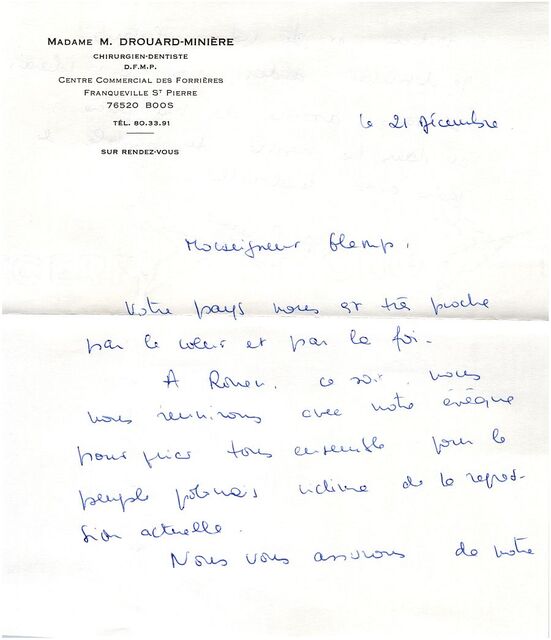 MADAME M. DROUARD-MINIÈRE
CHIRURGIEN-DENTISTE
D.F.M.P.
CENTRE COMMERCIAL DES FORRIÈRES
FRANQUEVILLE ST PIERRE
76520 BOOS
TÉL. 80.33.91
SUR RENDEZ-VOUS
le 21 Décembre.
Monseigneur Glemp,
Votre pays nous est très proche
par le cœur et par la foi.
A Rouen, ce soir, nous
nous réunirons avec notre évêque
pour prier tous ensemble pour le
peuple polonais victime de la repres-
sion actuelle.
Nous vous assurons de notre